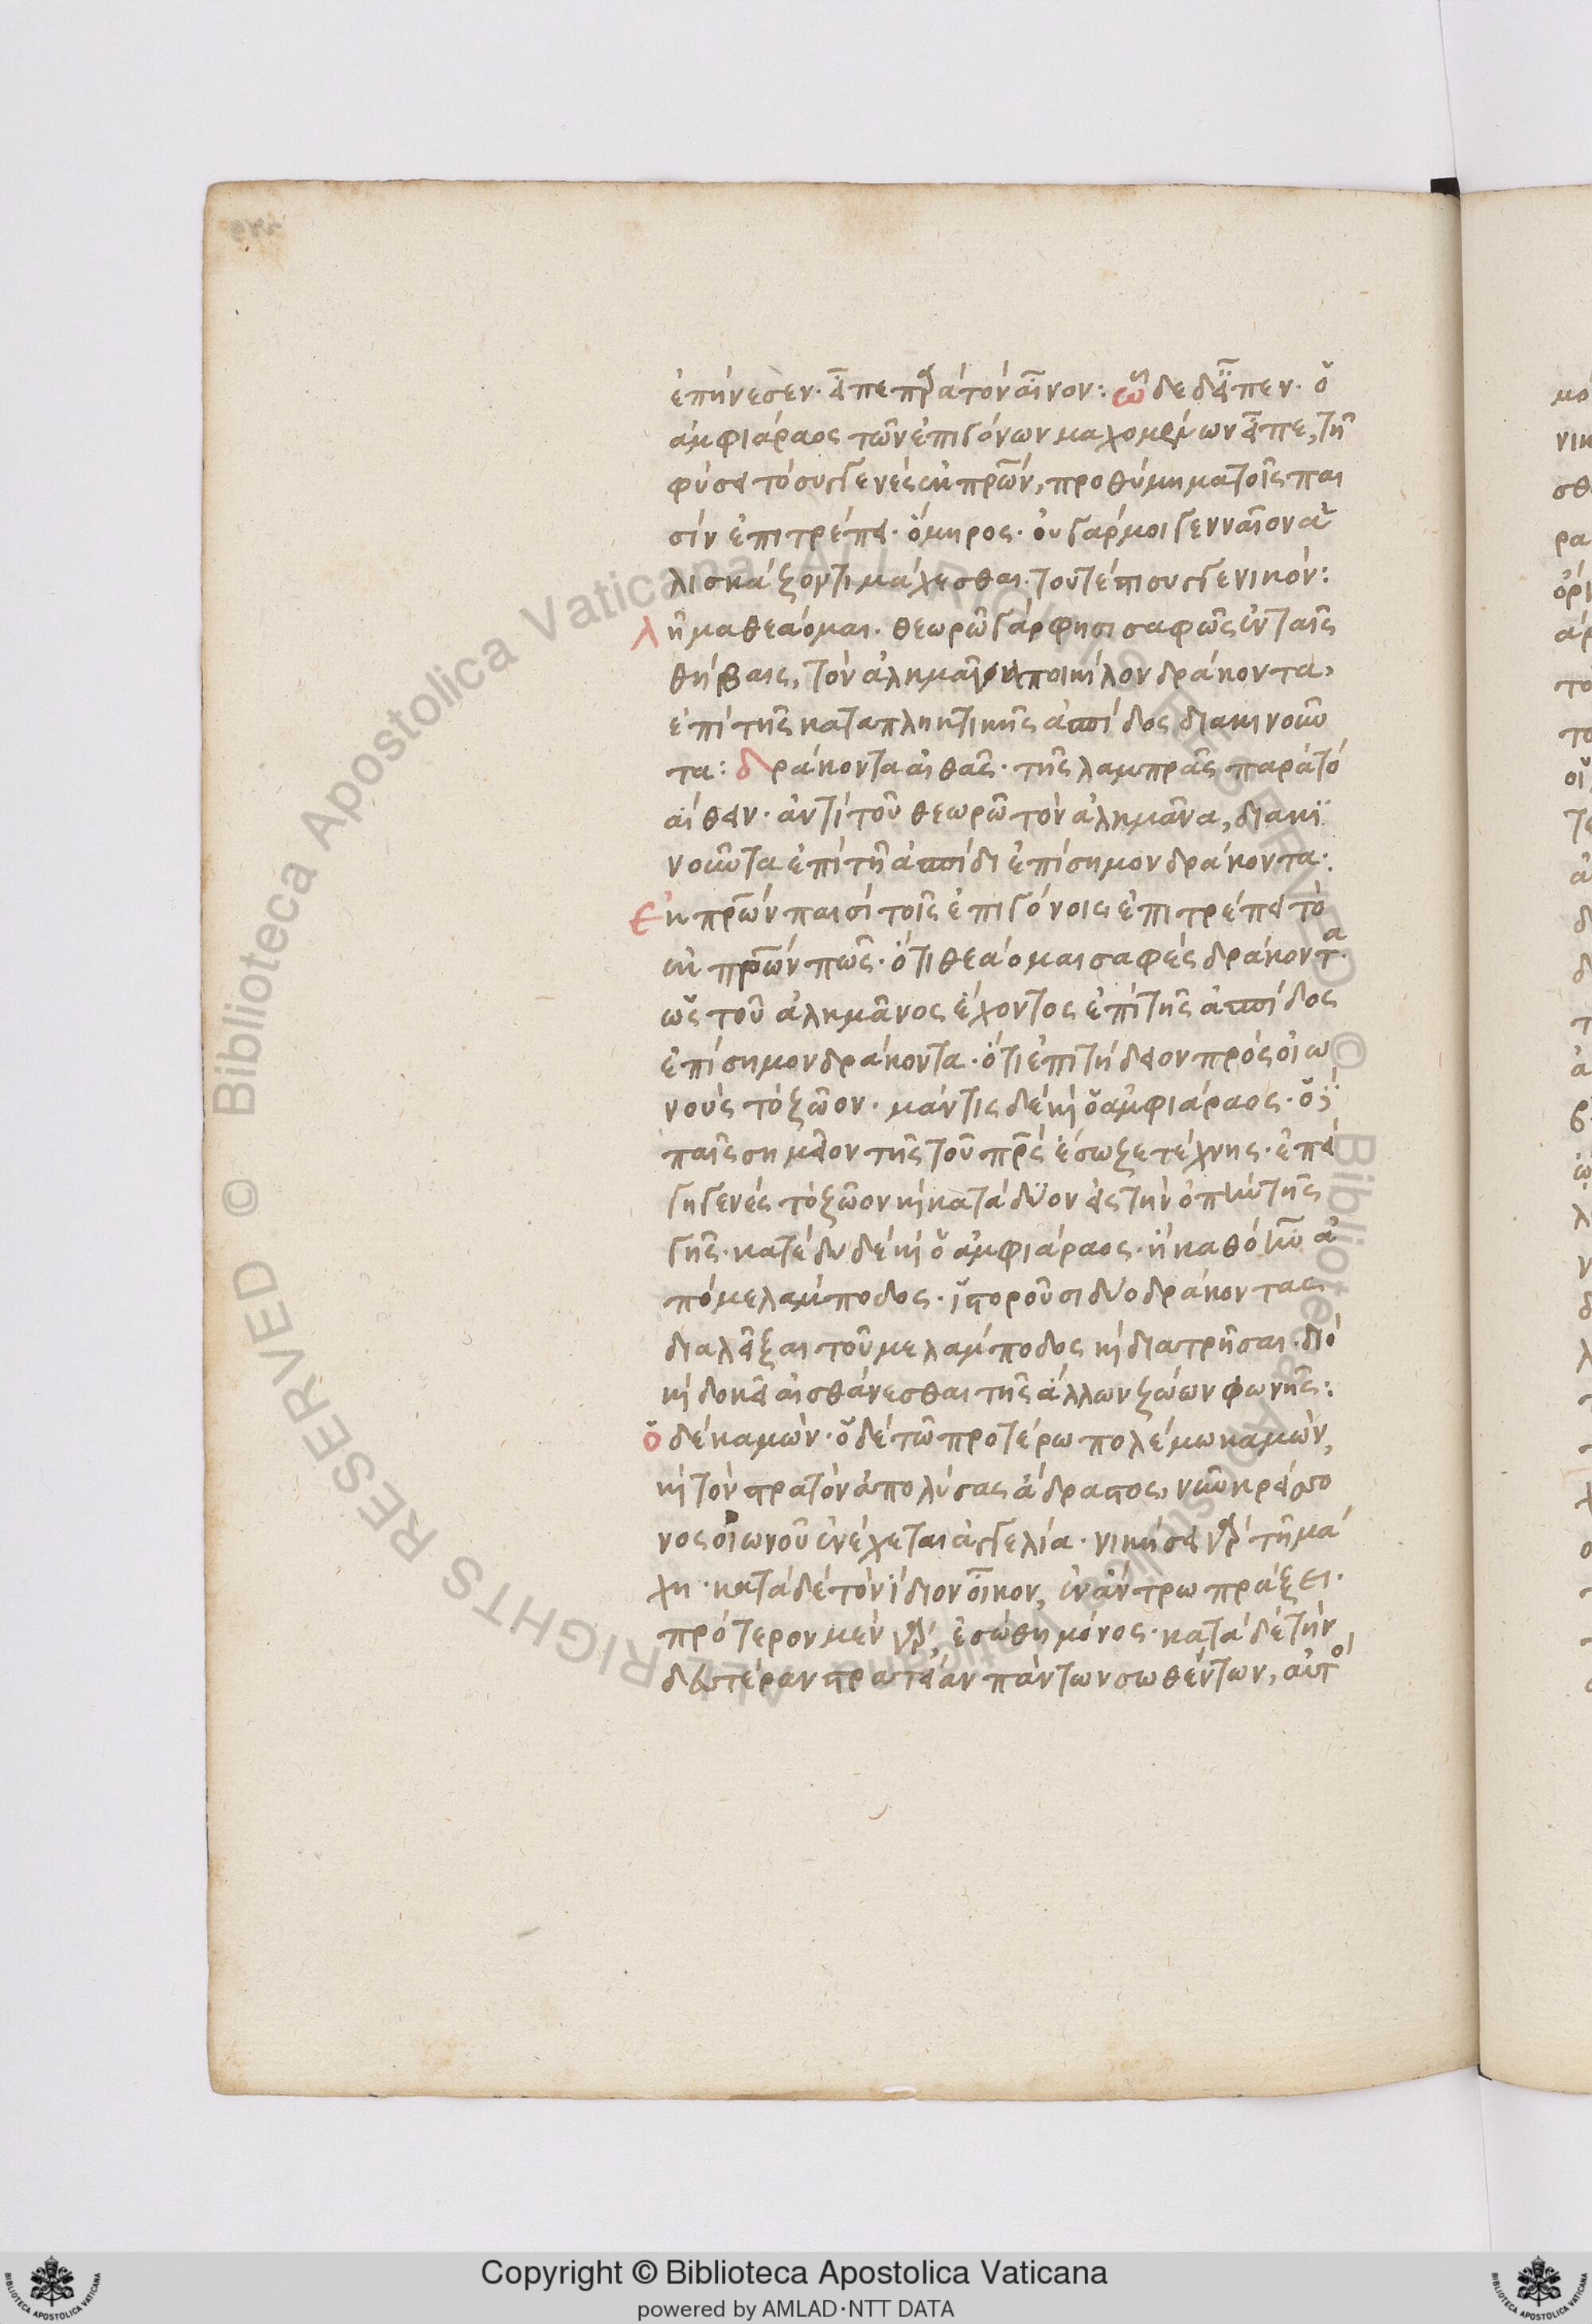 ἐπήνεσεν· εἶπε παρὰ τὸν αἶνον: ὧδε δ' εἶπεν· ὁ
ἀμφιάραος τῶν ἐπιγόνων μαχομένων εἶπε, τῆ
φύσει τὸ συγγενὲς ἐκ πρων, προθύμημα τοῖς παι
σὶν ἐπιτρέπει· ὅμηρος· οὐ γάρ μοι γενναῖον ἀ
λισκάζοντι μάχεσθαι· τουτέστι συγγενικόν:
λῆμα θεάομαι· θεωρῶ γάρ φησι σαφῶς ἐν ταῖς
θήβαις, τὸν ἀλκμαῖονα ποικίλον δράκοντα,
ἐπὶ τῆς καταπληκτικῆς ἀσπίδος διακινοῦν
τα: δράκοντα αἰθᾶς· τῆς λαμπρᾶς παρὰ τὸ
αἴθειν· ἀντὶ τοῦ θεωρῶ τὸν ἀλκμᾶνα, διακι
νοῦντα ἐπὶ τῆ ἀσπίδι ἐπίσημον δράκοντα:
ἐκ πρων παισὶ τοῖς ἐπιγόνοις ἐπιτρέπει τὸ
ἐκ πρων πῶς· ὅτι θεάομαι σαφὲς δράκοντα·
ὡς τοῦ ἀλκμᾶνος ἔχοντος ἐπὶ τῆς ἀσπίδος
ἐπίσημον δράκοντα· ὅτι ἐπιτήδειον πρὸς οἰω
νοὺς τὸ ζῶον· μάντις δὲ καὶ ὁ ἀμφιάραος· ὁ
παῖς σημεῖον τῆς τοῦ πρς ἔσωζε τέχνης· ἐπεὶ
γηγενὲς τὸ ζῶον καὶ καταδῦον εἰς τὴν ὀπὴν τῆς
γῆς· κατέδυ δὲ καὶ ὁ ἀμφιάραος· ἢ καθὸ ἦν ἀ
πὸ μελάμποδος· ἱστοροῦσι δύο δράκοντας
διαλεῖξαι τοῦ μελάμποδος καὶ διατρῆσαι· διὸ
καὶ δοκεῖ αἰσθάνεσθαι τῆς ἄλλων ζώων φωνῆς:
ὁ δὲ καμὼν· ὁ δὲ τῶ προτέρω πολέμω καμὼν,
καὶ τὸν στρατὸν ἀπολύσας ἄδραστος, νῦν κρείσσο
νος οἰωνοῦ ἐνέχεται ἀγγελία· νικήσει γὰρ τῆ μά
χη· κατὰ δὲ τὸν ἴδιον οἶκον, ἐναντρω πράξει·
πρότερον μὲν γὰρ, ἐσώθη μόνος· κατὰ δὲ τὴν
δευτέραν στρατείαν πάντων σωθέντων, αὐτοῦ
Copyright © Biblioteca Apostolica Vaticana
powered by AMLAD·NTT DATA